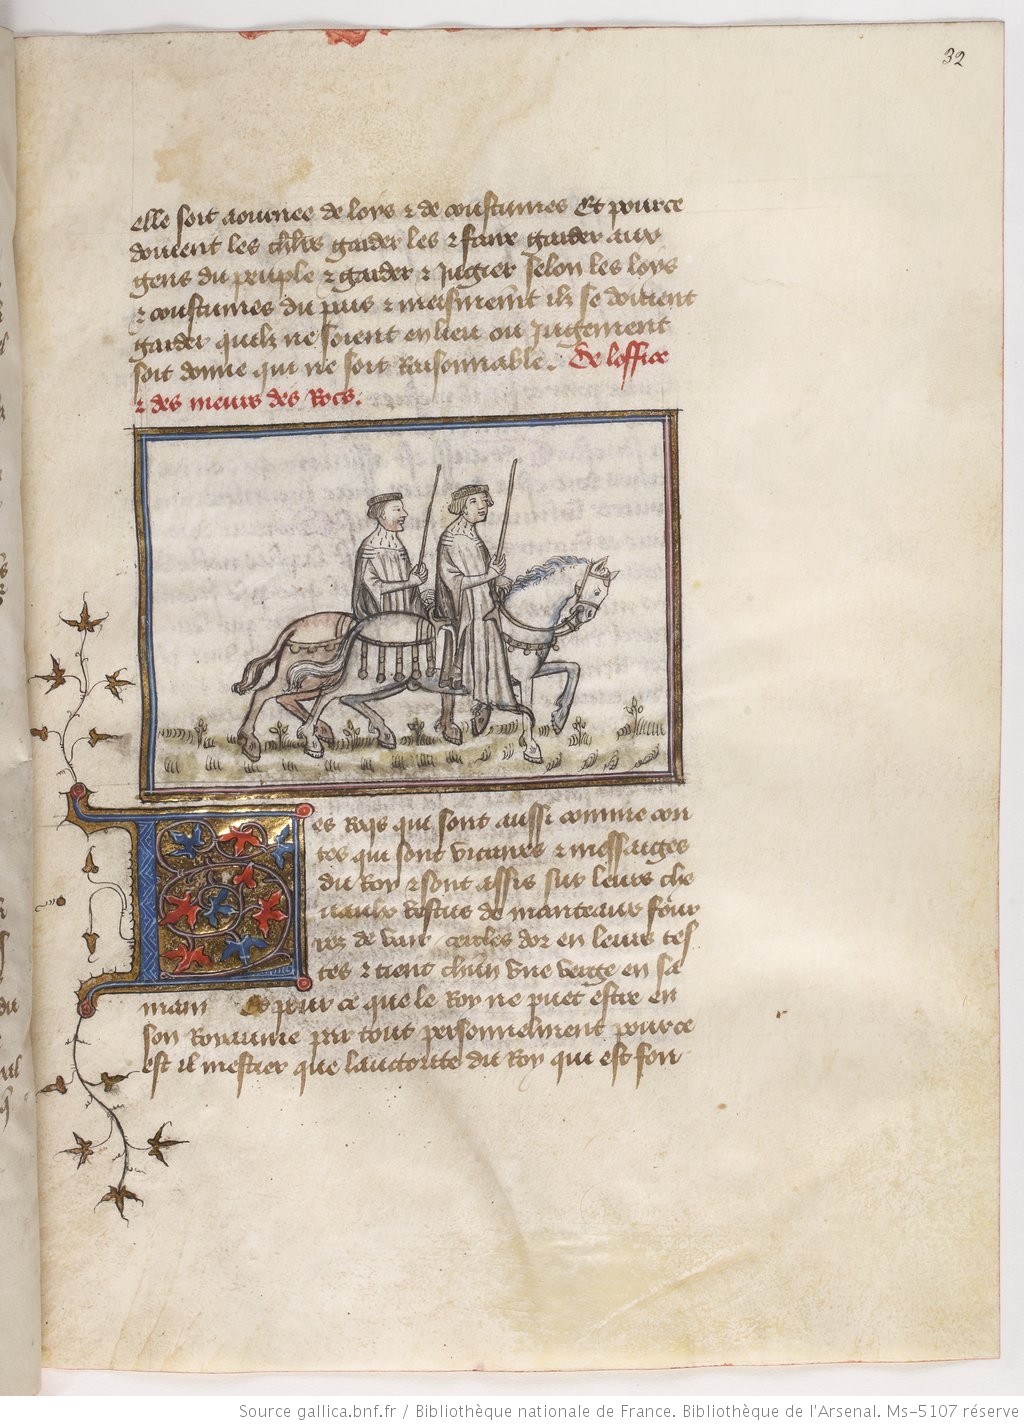 32
elle soit aournee de loys ⁊ de coustumes Et pource
doiuent les chlrs garder les ⁊ faire garder aux
gens du peuple ⁊ garder ⁊ Jugier selon les loys
⁊ coustumes du pais ⁊ meismemt ilz se doiuent
garder quilz ne soient en lieu ou Jugement
soit donne qui ne soit Raisonnable. De loffice
⁊ des meurs des Rocs.
es Rocs qui sont aussi comme con
tes qui sont vicaires ⁊ messaiges
du Roy ⁊ sont assis sur leurs che
uaulx vestus de manteaux four
rez de vair cercles dor en leurs tes
tes ⁊ tient chun vne verge en sa
main Et pour ce que le Roy ne puet estre en
son Royaume par tout personnelment pource
est il mestier que lauctorite du Roy qui est son
Source gallica.bnf.fr / Bibliothèque nationale de France. Bibliothèque de l'Arsenal. Ms-5107 réserve